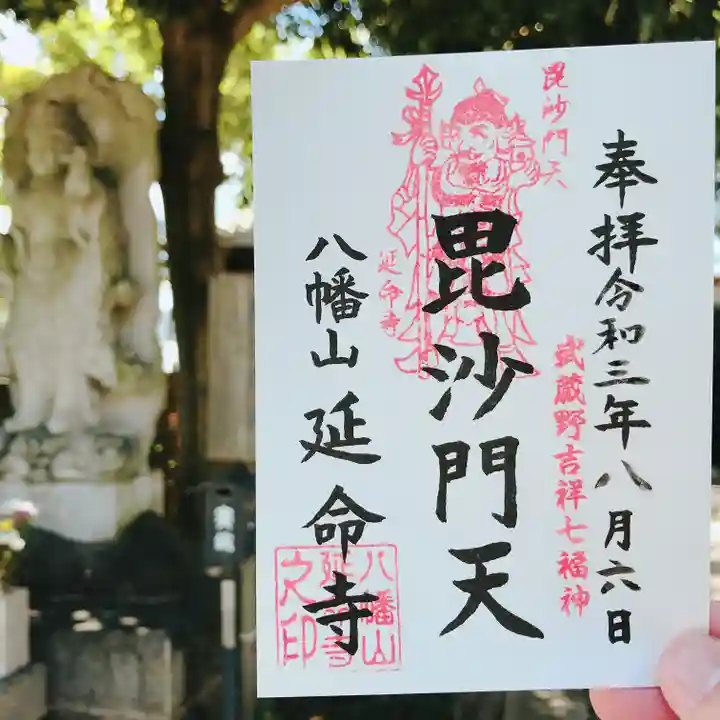 奉拝令和三年八月六日
武蔵野吉祥七福神
毘沙門天
毘沙門天
延命寺
八幡山延命寺
八幡山
延命寺
之印